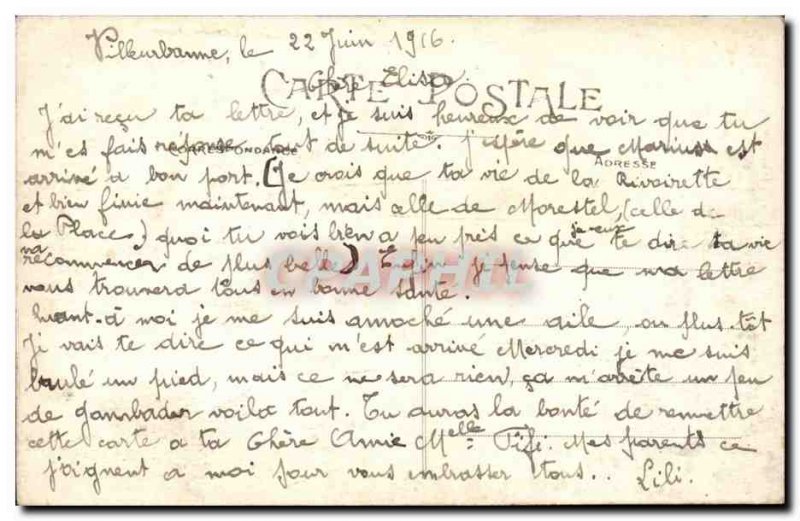 Villeurbanne, le 22 Juin 1916.
CARTE POSTALE
Chère Elisa
J'ai reçu ta lettre, et je suis heureux de voir que tu
m'es fais réponse tout de suite. J'espère que Marius est
CORRESPONDANCE
ADRESSE
arrivé a bon port. (Je crois que ta vie de la Rivoirette
et bien finie maintenant, mais celle de Morestel, (celle de
la Place) quoi tu vois bien a peu près ce que je veux te dire ta vie
va recommencer de plus belle) Enfin je pense que ma lettre
vous trouvera tous en bonne santé.
Quant-à moi je me suis amoché une aile, ou plus tôt
Ji vais te dire ce qui m'est arrivé Mercredi je me suis
brulé un pied, mais ce ne sera rien, ça m'arrête un peu
de gambader voilà tout. Tu auras la bonté de remettre
cette carte a ta Chère Amie Melle Fifi. Mes parents ce
joignent a moi pour vous embrasser tous.. Lili.